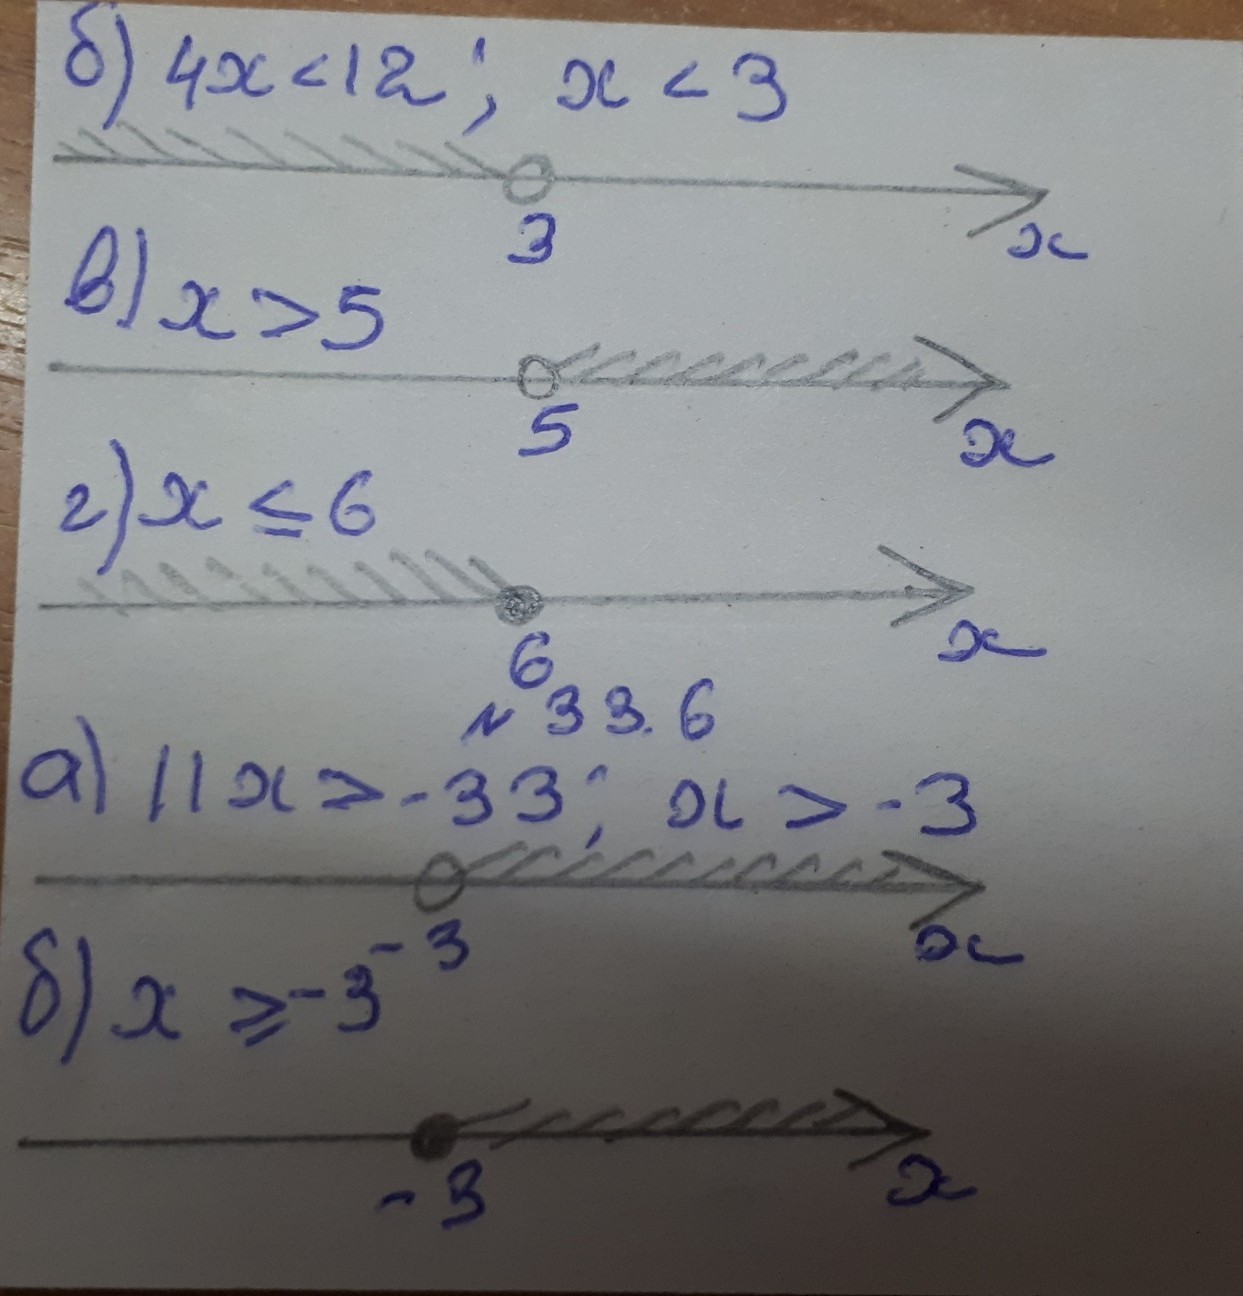 б) 4x < 12; x < 3
3
x
в) x > 5
5
x
г) x ≤ 6
6
x
№ 33.6
а) 11x > -33; x > -3
-3
x
б) x ≥ -3
-3
x